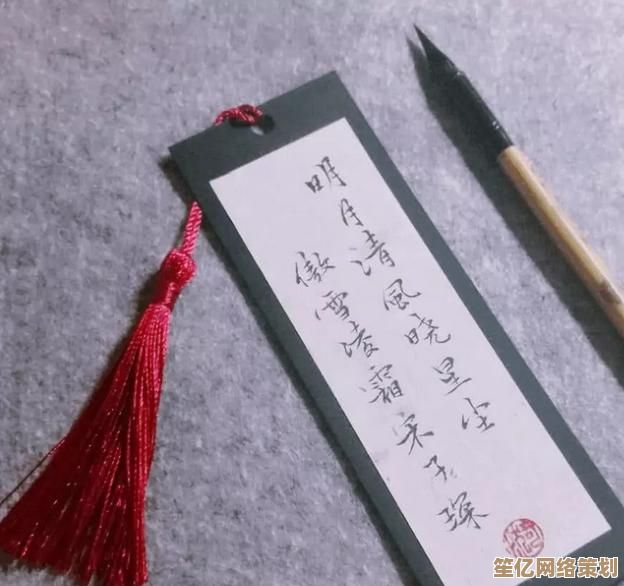 明月清風晓星尘
傲雪凌霜宋子琛
笙亿网络策划